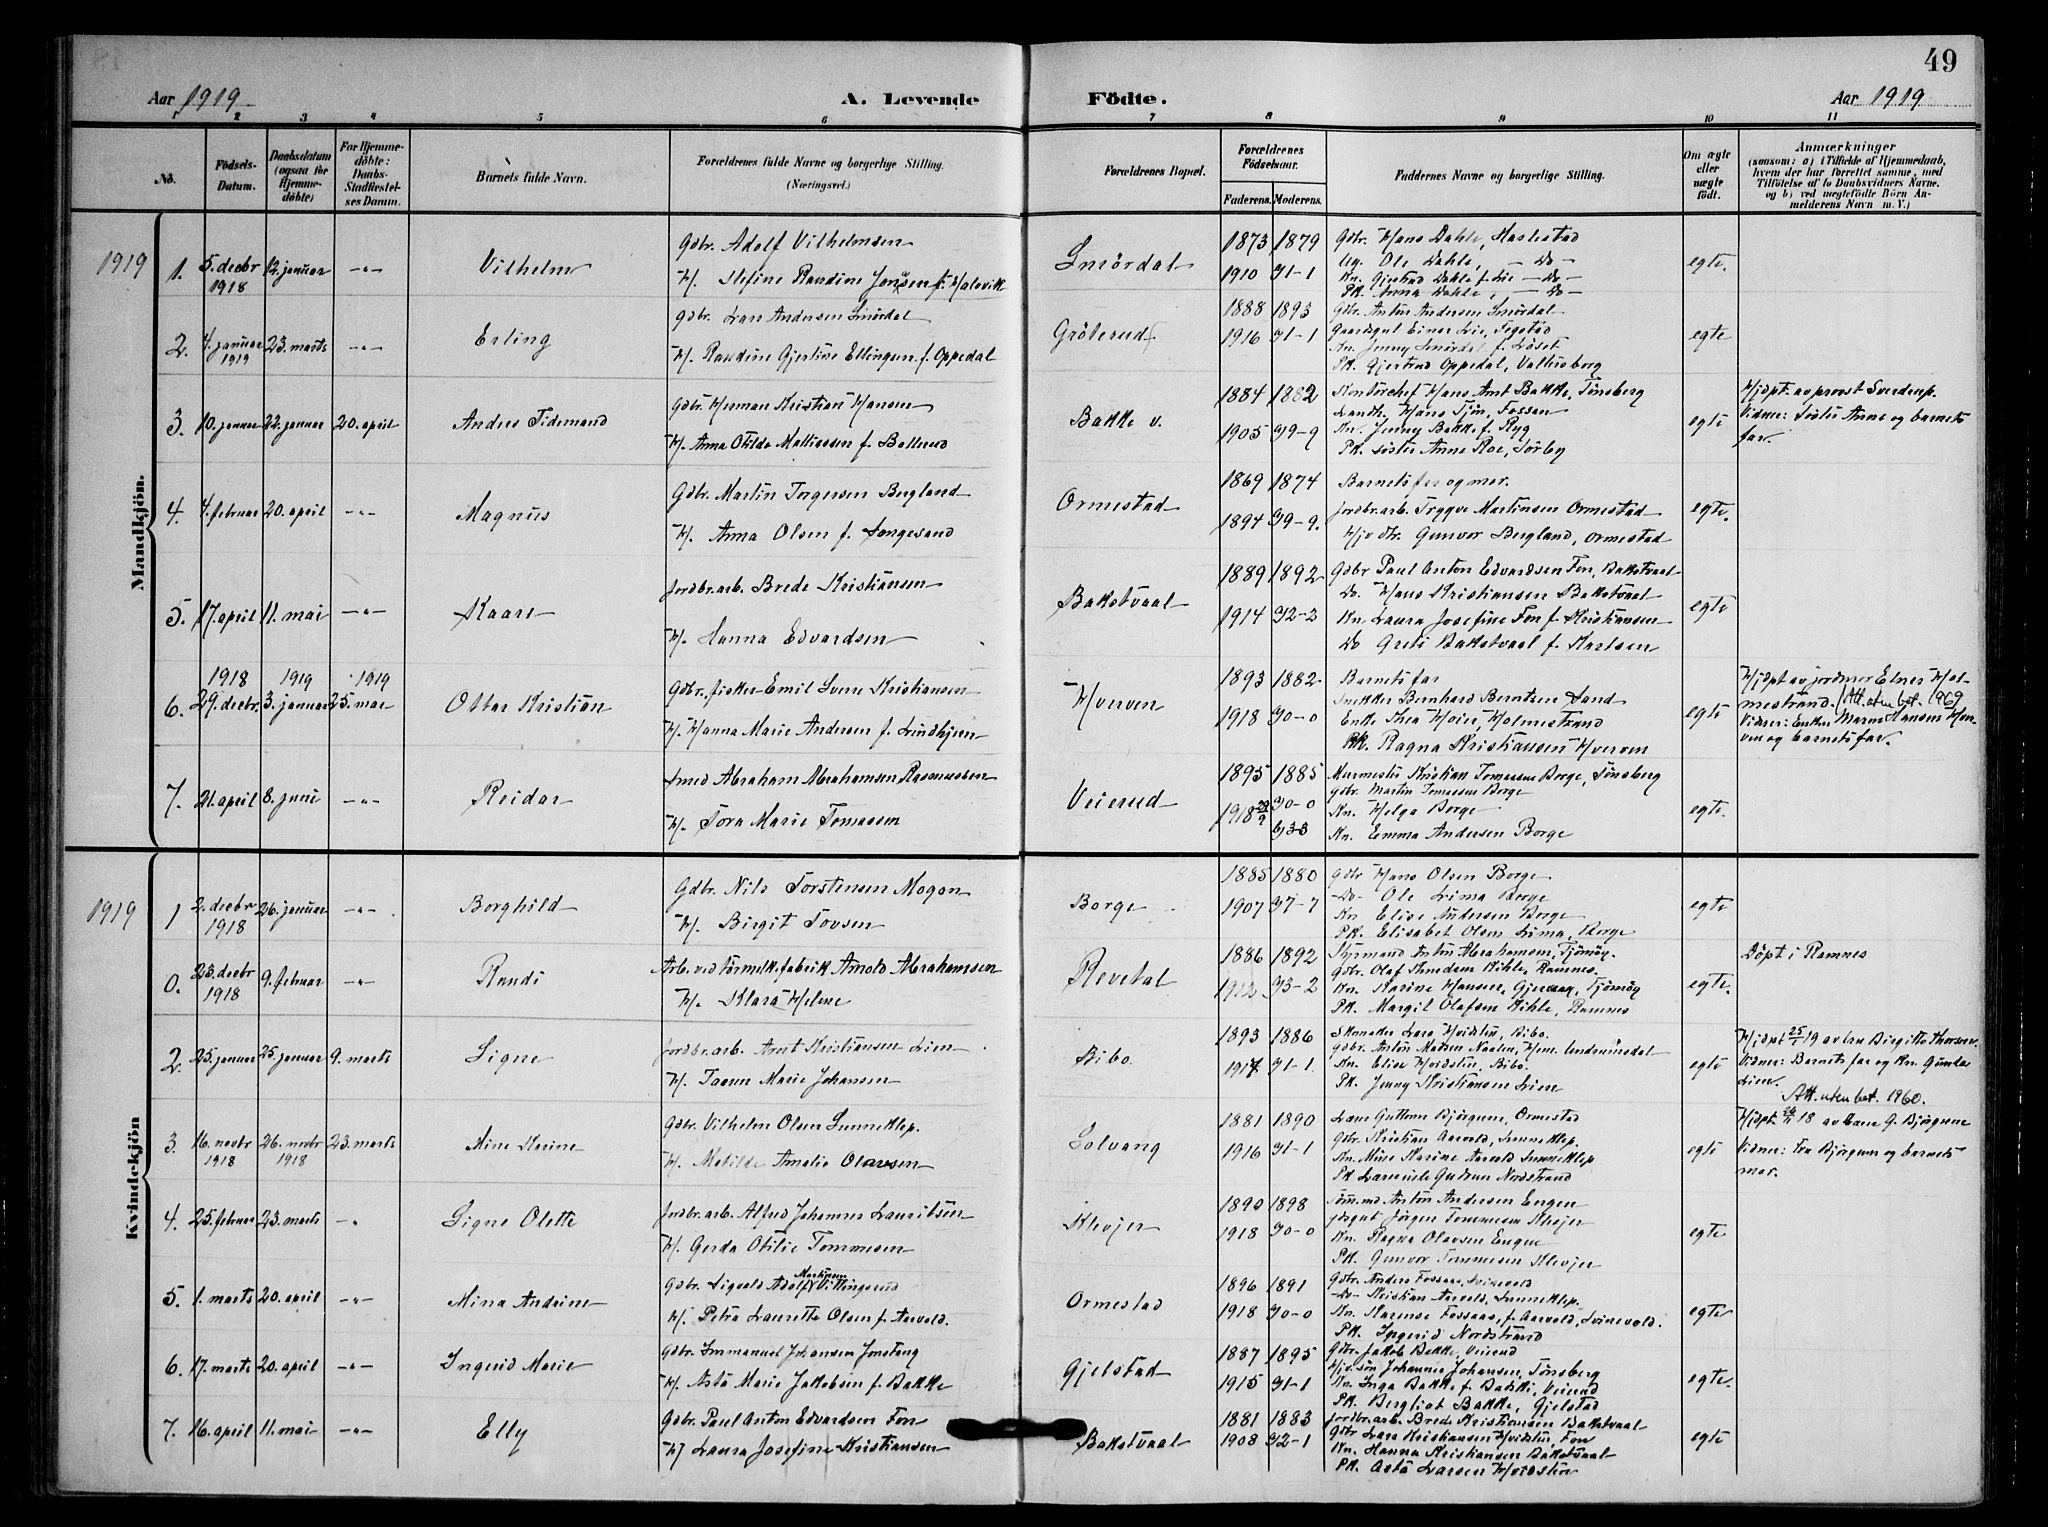 49
Aar 1919
A. Levende Födte.
Aar 1919
1 2 3 4 5 6 7 8 9 10 11
No.
Födsels-Datum.
Daabsdatum (ogsaa for Hjemmedöbte)
For Hjemmedöbte: Daabs-Stadfæstelses Datum.
Barnets fulde Navn.
Forældrenes fulde Navne og borgerlige Stilling. (Næringsvei.)
Forældrenes Bopæl.
Forældrenes Födselsaar.
Faderens. Moderens.
Faddernes Navne og borgerlige Stilling.
Om ægte eller uægte födt.
Anmærkninger
(saasom: a) i Tilfælde af Hjemmedaab, hvem der har forrettet samme, med Tilföielse af to Daabsvidners Navne. og b) ved uægtefödte Börn Anmelderens Navn m. V.)
Mandkjön.
1919
1. 5. decbr 1918 12. januar -"- Vilhelm
Gdbr. Adolf Vilhelmsen
H. Stefine Randine Jonsen f. Holsvik
Smördal 1873 1879 1910 31-1
Gdbr. Hans Dahle, Haslestad
Ug. Ole Dahle, - Do -
Kn. Gjertrud Dahle f. Lie - Do -
Pk. Anna Dahle, - Do -
egte.
2. 4. januar 1919 23. marts -"- Erling
Gdbr. Lars Andersen Smördal
H. Randine Gjertine Ellingsen f. Oppedal
Gröterud 1888 1893 1916 31-1
Gdbr. Anton Andersen Smördal
Gaardsgut Einar Lie, Tegstad
Kn. Jenny Smördal f. Löset
Pk. Gjertrud Oppedal, Vallersborg
egte
3. 10. januar 22. januar 20. april Anders Tidemand
Gdbr. Herman Kristian Hansen
H. Anna Otilde Mathiassen f. Bollerud
Bakke v. 1884 1882 1905 39-9
Kontorchef Hans Arnt Bakke, Tönsberg
Landh. Hans Tjön, Fossan
Kn. Jenny Bakke f. Ryg
Pk. söster Anne Roe, Sörby
egte
Hjdpt. av provst Sverdrup.
Vidner: Söster Anne og barnets far.
4. 4. februar 20. april -"- Magnus
Gdbr. Martin Torgersen Bergland
H. Anna Olsen f. Songesand
Ormestad 1869 1874 1894 39-9.
Barnets far og mor.
Jordbr.arb. Trygve Martinsen Ormestad
Hjv. dtr. Gunvor Bergland, Ormestad
egte.
5. 17. april 11. mai -"- Kaare
Jordbr.arb. Brede Kristiansen
H. Hanna Edvardsen
Bakstvaal 1889 1892 1914 32-3
Gdbr Paul Anton Edvardsen Fon, Bakstvaal
Do. Hans Kristiansen Bakstvaal
Kn Laura Josefine Fon f. Kristiansen
Do Grete Bakstvaal f. Karlsen
egte
6. 1918 29. decbr. 1919 3. januar 1919 25. mai Ottar Kristian
Gdbr. fisker Emil Sverre Kristiansen
H. Hanna Marie Andersen f. Lindhjem
Hverven 1893 1882 1918 30-0
Barnets far
Snekker Bernhard Berntsen Sand
Enke Thea Hoier, Holmestrand
Pk. Ragna Kristiansen Hverven
egte
Hjdpt av jordmor Elnes Holmestrand. Att. uten bet. 1969
Vidner: Enken Maren Hansen Hverven og barnets far.
7. 21. april 8. juni -"- Reidar
Smed Abraham Abrahamsen Rasmussen
H. Tora Marie Tomassen
Veierud 1895 1885 1918 29/9 30-0
Murmester Kristian Tomassen Borge, Tönsberg
gdbr. Martin Tomassen Borge
Kn. Helga Borge
Kn. Emma Andersen Borge
egte.
Kvindekjön
1919
1 2. decbr 1918 26. januar -"- Borghild
Gdbr. Nils Torstensen Mogan
H. Birgit Tovsen
Borge 1885 1880 1907 37-7
Gdbr Hans Olsen Borge
-Do- Ole Lima Borge
Kn Elise Andersen Borge
Pk. Elisabet Olsen Lima, Borge
egte
0. 23. decbr 1918 9. februar -"- Randi
Arb. ved törmelk.fabrik Arnold Abrahamsen
H. Klara Helene
Revetal 1886 1892 1912 33-2
Styrmand Anton Abrahamsen, Tjömöy.
Gdbr. Olaf Knudsen Kihle, Ramnes.
Kn. Karine Hansen, Tjömöy
Pk. Margit Olafsen Kihle, Ramnes
egte.
Döpt i Ramnes
2. 25. januar 25. januar 9. marts Signe
Jordbr.arb. Arnt Kristiansen Lien
H. Marie Johansen
Bibo. 1893 1886 1917 31-1
Skomaker Lars Hvidsten, Bibo.
gdbr. Anton Madsen
Kn. Elise Hvidsten, Bibo.
Pk. Jenny Kristiansen Lien
egte
Hjdpt 25/1 19 av fru Birgitte Thorsen.
Vidner: Barnets far og Kn. Gunda Lien.
Att. uten bet. 1960.
3. 16. novbr 1918 26. novbr 1918 23. marts Aine Karine
Gdbr. Vilhelm Olsen Sunneklep.
H. Matilde Amalie Olavesen
Solvang 1881 1890 1916 31-1
Lars Guttorm Björgum, Ormestad
Gdbr. Kristian Aarvold, Sunneklep.
Kn. Mine Karine Aarvold Sunneklep
Pk Lærerinde Gudrun Nordstrand
egte
Hjdpt. 26/11 18 av Lars G. Björgum
Vidner: Fru Björgum og barnets mor.
4. 25. februar 23. marts -"- Signe Olette
Jordbr.arb. Alfred Johannes Lauritsen
H. Gerda Otilie Tommesen
Klevjer 1890 1898 1918 30-0
Töm.md Anton Andersen Engen
gdsgut Jörgen Tommesen Klevjer
Kn. Ragna Olavsen Engen
Pk. Gunvor Tommesen Klevjer
egte
5. 1. marts 20. april -"- Mina Andrine
Gdbr. Sigvald Adolf Martinsen Vittingsrud
H. Petra Laurette Olsen f. Aarvold.
Ormestad 1896 1891 1918 30-0
Gdbr. Anders Fossaas, Svinevold
-Do- Kristian Aarvold, Sunneklep.
Kn. Karense Fossaas, f. Aarvold, Svinevold.
Pk. Ingerid Nordstrand
egte
6. 17. marts 20. april -"- Ingrid Marie
Gdbr. Immanuel Johansen Jonstang
H. Asta Marie Jakobsen f. Bakke
Gjelstad 1887 1895 1915 31-1
Gdbr. Jakob Bakke, Veierud
Hjv. sön Johannes Johansen, Tönsberg
Kn. Inga Bakke f. Bakke, Veierud
Pk. Bergliot Bakke, Gjelstad
egte.
7. 16. april 11. mai -"- Elly
Gdbr. Paul Anton Edvardsen Fon
H. Laura Josefine Kristiansen
Bakstvaal 1881 1883 1908 32-1
Jordbr.arb. Brede Kristiansen Bakstvaal
Gdbr Lars Kristiansen Hvidsten, Fon
Kn. Hanna Kristiansen Bakstvaal
Pk. Asta Larsen Hvidsten
egte